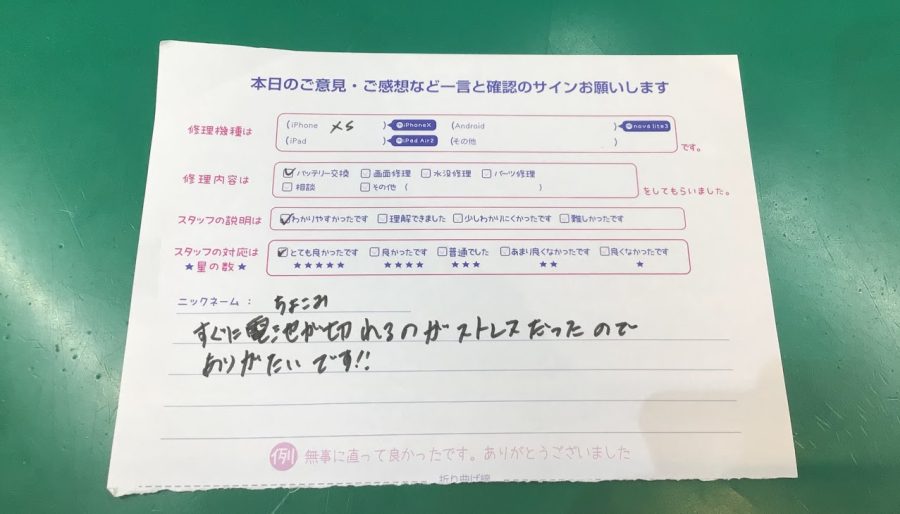 本日のご意見・ご感想など一言と確認のサインお願いします
修理機種は (iPhone XS ) iPhoneX (Android ) nova lite3
(iPad ) iPad Air2 (その他 ) です。
修理内容は バッテリー交換 画面修理 水没修理 パーツ修理
相談 その他 ( ) をしてもらいました。
スタッフの説明は わかりやすかったです 理解できました 少しわかりにくかったです 難しかったです
スタッフの対応は とても良かったです 良かったです 普通でした あまり良くなかったです 良くなかったです
★星の数★ ★★★★★ ★★★★ ★★★ ★★ ★
ニックネーム： ちょこみ
すぐに電池が切れるのがストレスだったので
ありがたいです!!
例 無事に直って良かったです。ありがとうございました
折り曲げ線